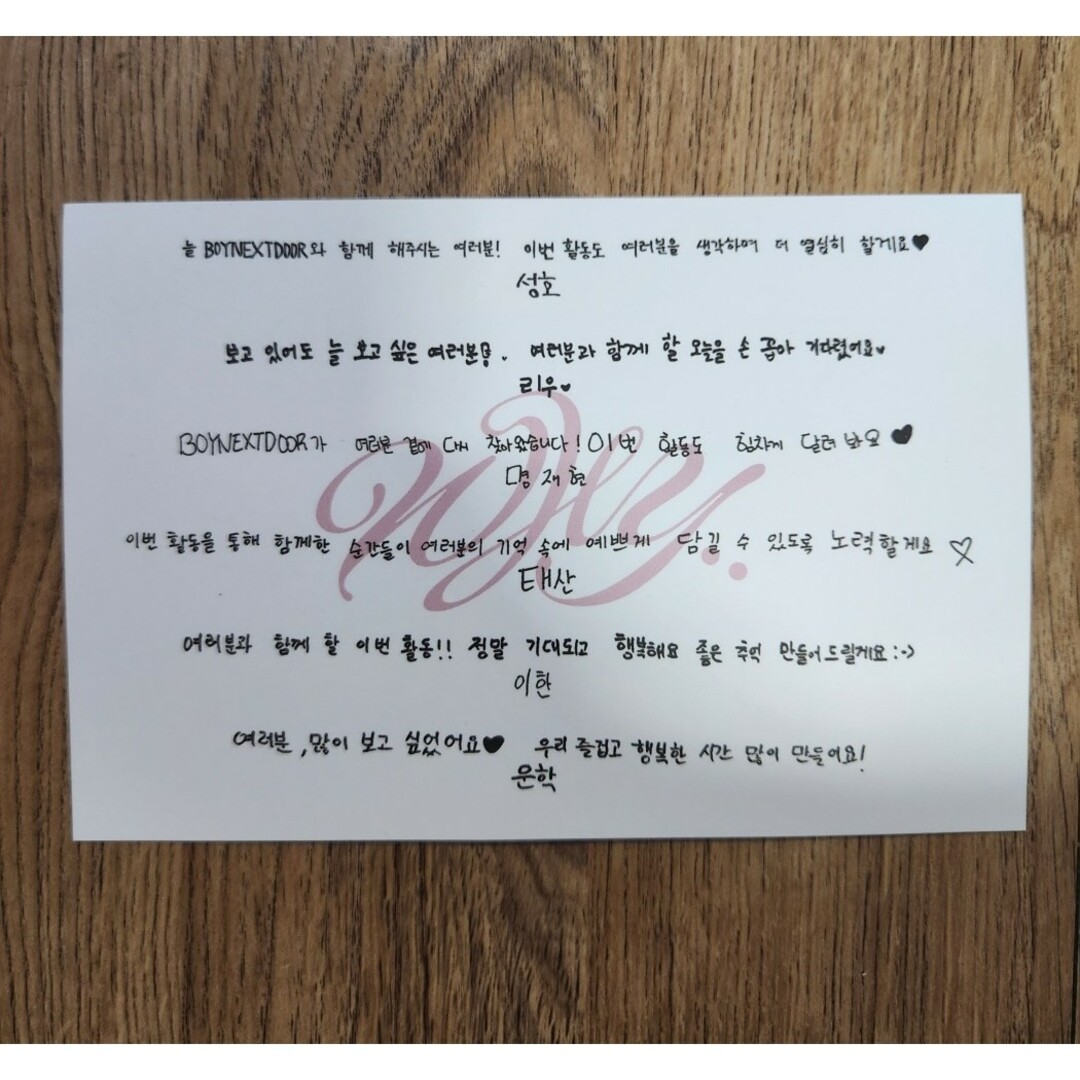 늘 BOYNEXTDOOR와 함께 해주시는 여러분! 이번 활동도 여러분을 생각하며 더 열심히 할게요♥
성호
보고 있어도 늘 보고 싶은 여러분 . 여러분과 함께 할 오늘을 손 꼽아 기다렸어요♥
리우♥
BOYNEXTDOOR가 여러분 곁에 다시 찾아왔습니다! 이번 활동도 힘차게 달려 봐요 ♥
명재현
Why..
이번 활동을 통해 함께한 순간들이 여러분의 기억 속에 예쁘게 담길 수 있도록 노력할게요 ♡
태산
여러분과 함께 할 이번 활동!! 정말 기대되고 행복해요 좋은 추억 만들어드릴게요 :->
이한
여러분, 많이 보고 싶었어요♥ 우리 즐겁고 행복한 시간 많이 만들어요!
운학